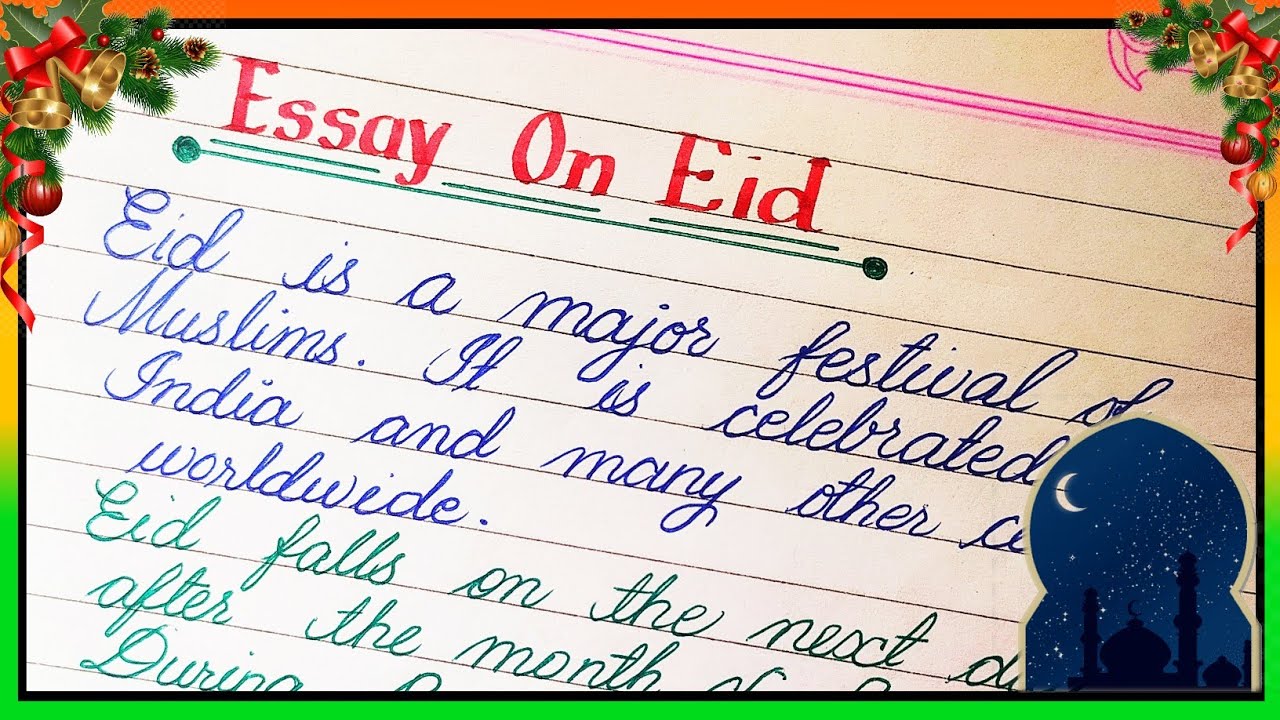 Essay On Eid
Eid is a major festival of
Muslims. It is celebrated
India and many other
worldwide.
Eid falls on the next
after the month of
During